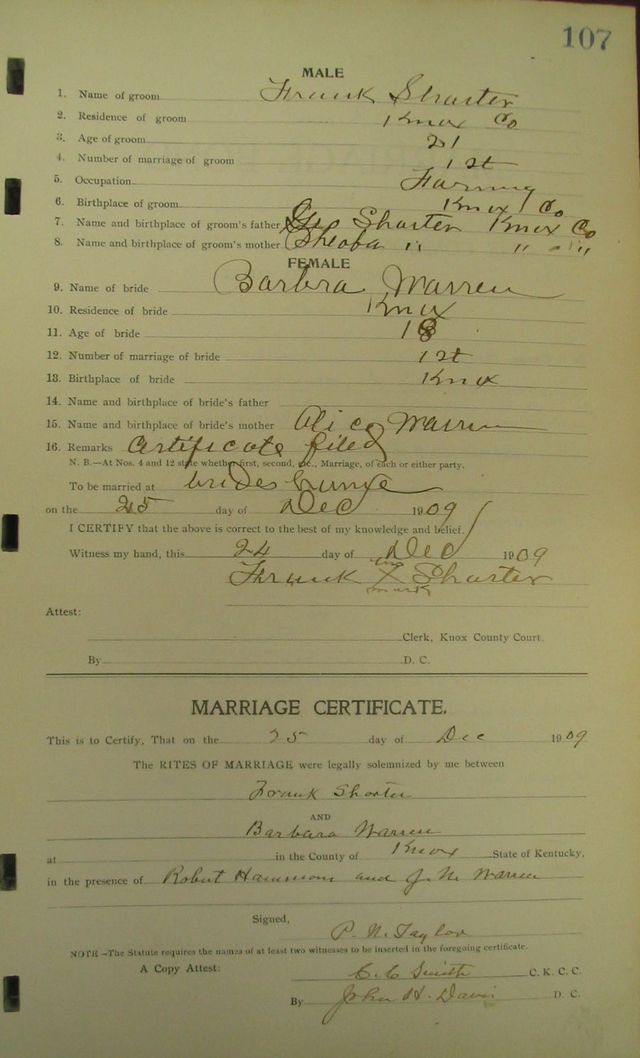 107
MALE
1. Name of groom Frank Sharter
2. Residence of groom Knox Co
3. Age of groom 21
4. Number of marriage of groom 1st
5. Occupation Farming
6. Birthplace of groom Knox Co
7. Name and birthplace of groom's father Geo Sharter Knox Co
8. Name and birthplace of groom's mother Sheoba " " "
FEMALE
9. Name of bride Barbra Warren
10. Residence of bride Knox
11. Age of bride 18
12. Number of marriage of bride 1st
13. Birthplace of bride Knox
14. Name and birthplace of bride's father
15. Name and birthplace of bride's mother Alice Warren
16. Remarks Certificate filed
N. B.—At Nos. 4 and 12 state whether first, second, etc., Marriage, of each or either party.
To be married at brides
on the 25 day of Dec 1909
I CERTIFY that the above is correct to the best of my knowledge and belief.
Witness my hand, this 24 day of Dec 1909
Frank X Sharter
mark
Attest:
Clerk, Knox County Court.
By D. C.
MARRIAGE CERTIFICATE.
This is to Certify, That on the 25 day of Dec 1909
The RITES OF MARRIAGE were legally solemnized by me between
Frank Sharter
AND
Barbara Warren
at in the County of Knox State of Kentucky,
in the presence of Robert Hammons and J. M. Warren
Signed,
P. N. Taylor
NOTE—The Statute requires the names of at least two witnesses to be inserted in the foregoing certificate.
A Copy Attest: C. C. Smith C. K. C. C.
By John H. Davis D. C.